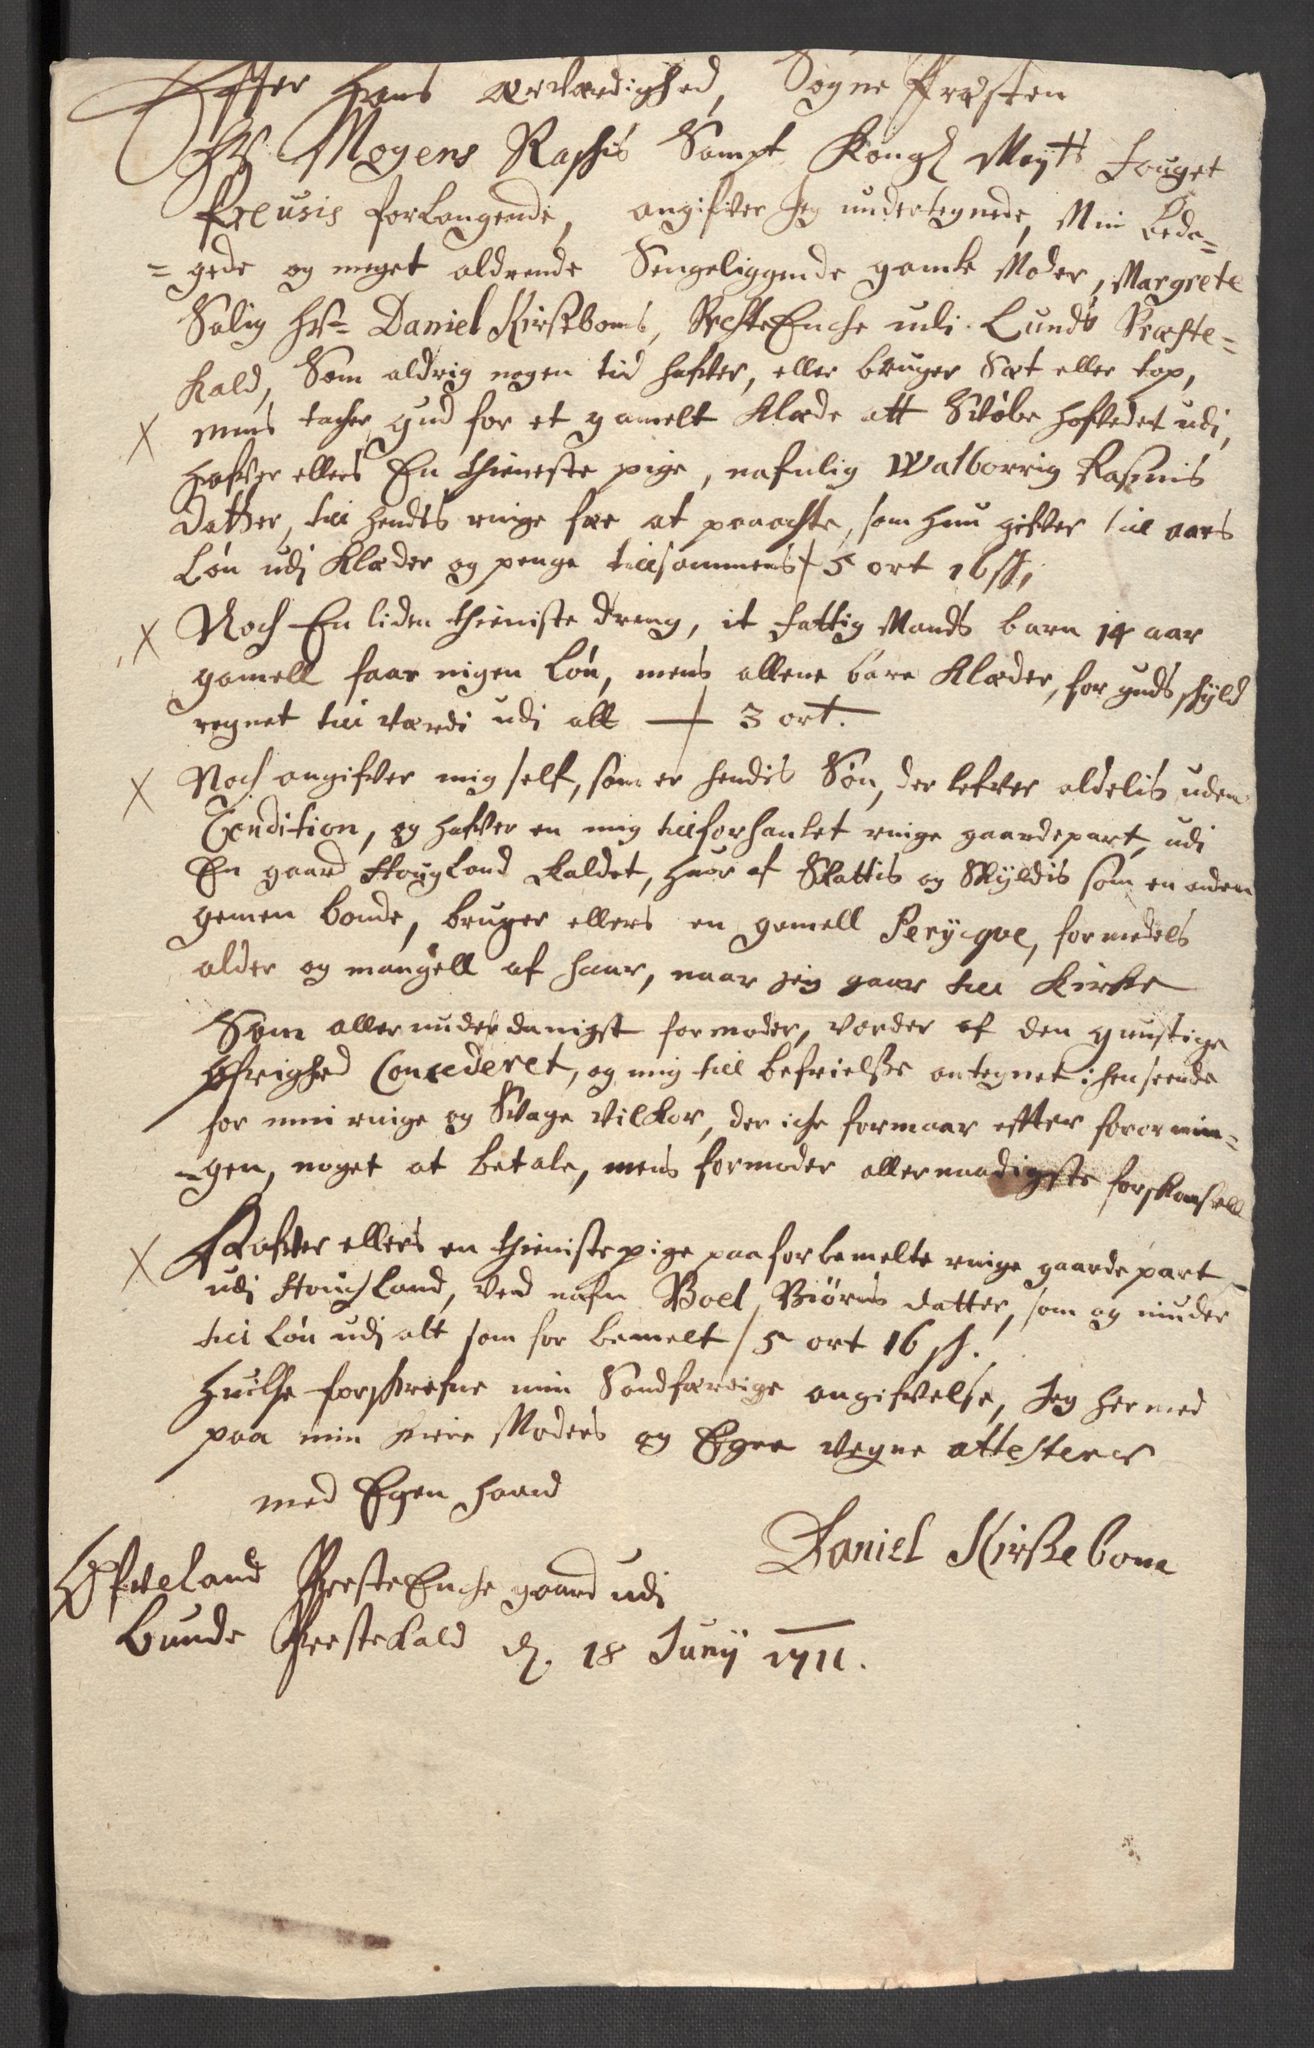 Effter hans ærværdighed, Sogne Præsten
Hr Mogens Raschis Sampt Kongl Mayts fouget
Preusis forlangende, angifver Jeg undertegnede, Min beda=
=gede og meget aldrende Sengeliggende gamle Moder, Margrete
Salig Hr= Daniel Kirssboms, PresteEnche udi Lunds Præste=
kald, Som aldrig nogen tid hafver, eller bruger Sæt eller top,
mens tacher Gud for et gamelt Klæde att Svøbe hofvedet udi,
hafver ellers En thieneste pige, nafnlig Walborrig Rasmis
datter, till hendes ringe fæe at paaachte, som hun gifver till aars
Løn udi Klæder og penge tillsammens / 5 ort 16 sh,
Noch En liden thieniste dreng, it fattig Mands barn 14 aar
gamell faar ingen Løn, mens allene bare Klæder, for guds skyld
regnet till værdi udi alt — 3 ort.
Noch angifver mig self, som er hendis Søn, der lefver aldelis uden
Condition, og hafver en mig tillforhanlet ringe gaardepart, udi
En gaard Hougland kaldet, huor af Skattis og Skyldis som en anden
gemen bonde, bruger ellers en gamell Perycqve, formedels
alder og mangell af haar, naar jeg gaar till Kirke
Som allerunderdanigst formoder, vorder af den gunstige
øfrighed Concederet, og mig till befrielsse antegnet i henseende
for min ringe og Svage Vilkor, der iche formaar effter forornin=
=gen, noget at betale, mens formoder allernaadigste forskonsell
Hafver ellers en thienistepige paa forbemelte ringe gaardepart
udi Houchland, ved nafn Boel Biørns datter, som og niuder
till Løn udi alt som for bemelt / 5 ort 16 sh.
Huilche forschrefne min Sandfærdige angifvelse, Jeg hermed
paa min kiere Moders og Egne vegne attesterer
med Egen haand
Daniel Kirssebom
Øfveland PresteEnche gaard udi
Lunds Prestekald d. 18 Junij 1711.